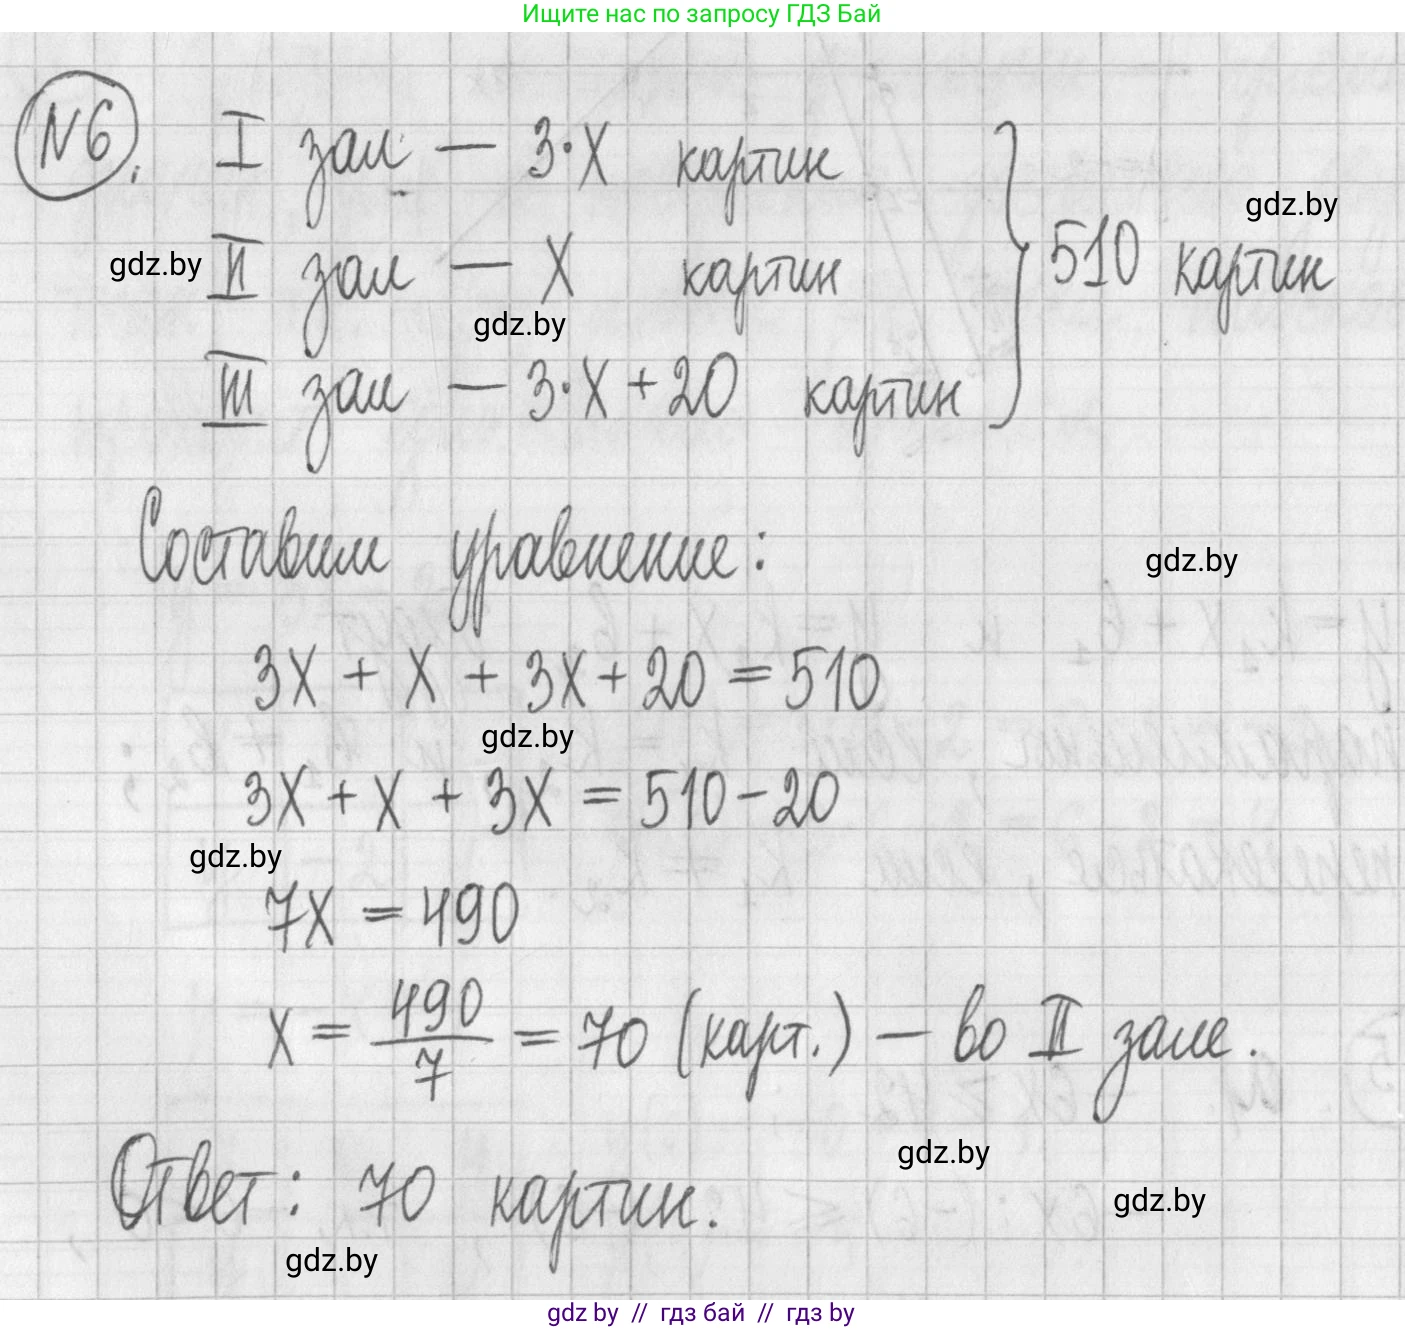 Ищите нас по запросу ГДЗ Бай
N6. I зал — 3·x картин
gdz.by
gdz.by II зал — x картин } 510 картин
gdz.by
III зал — 3·x + 20 картин
Составим уравнение:
gdz.by
3x + x + 3x + 20 = 510
gdz.by
3x + x + 3x = 510 - 20
gdz.by
7x = 490
x = 490/7 = 70 (карт.) — во II зале.
gdz.by
Ответ: 70 картин.
gdz.by
gdz.by
gdz by // гдз бай // гдз by